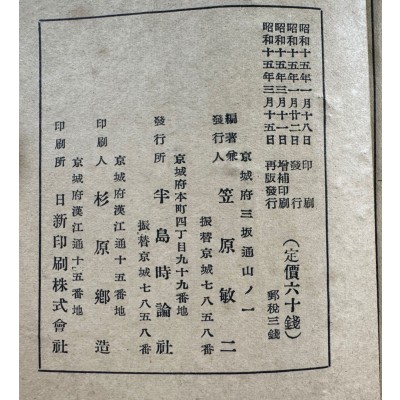 昭和十五年一月十八日 印刷
昭和十五年一月廿二日 發行
昭和十五年三月十一日 增補印刷
昭和十五年三月十五日 再版發行
(定價六十錢)
郵稅三錢
京城府三坂通山ノ一
編著兼
發行人 笠原敏二
振替京城七八五八番
京城府本町四丁目九十九番地
發行所 半島時論社
振替京城七八五八番
京城府漢江通十五番地
印刷人 杉原鄕造
京城府漢江通十五番地
印刷所 日新印刷株式會社